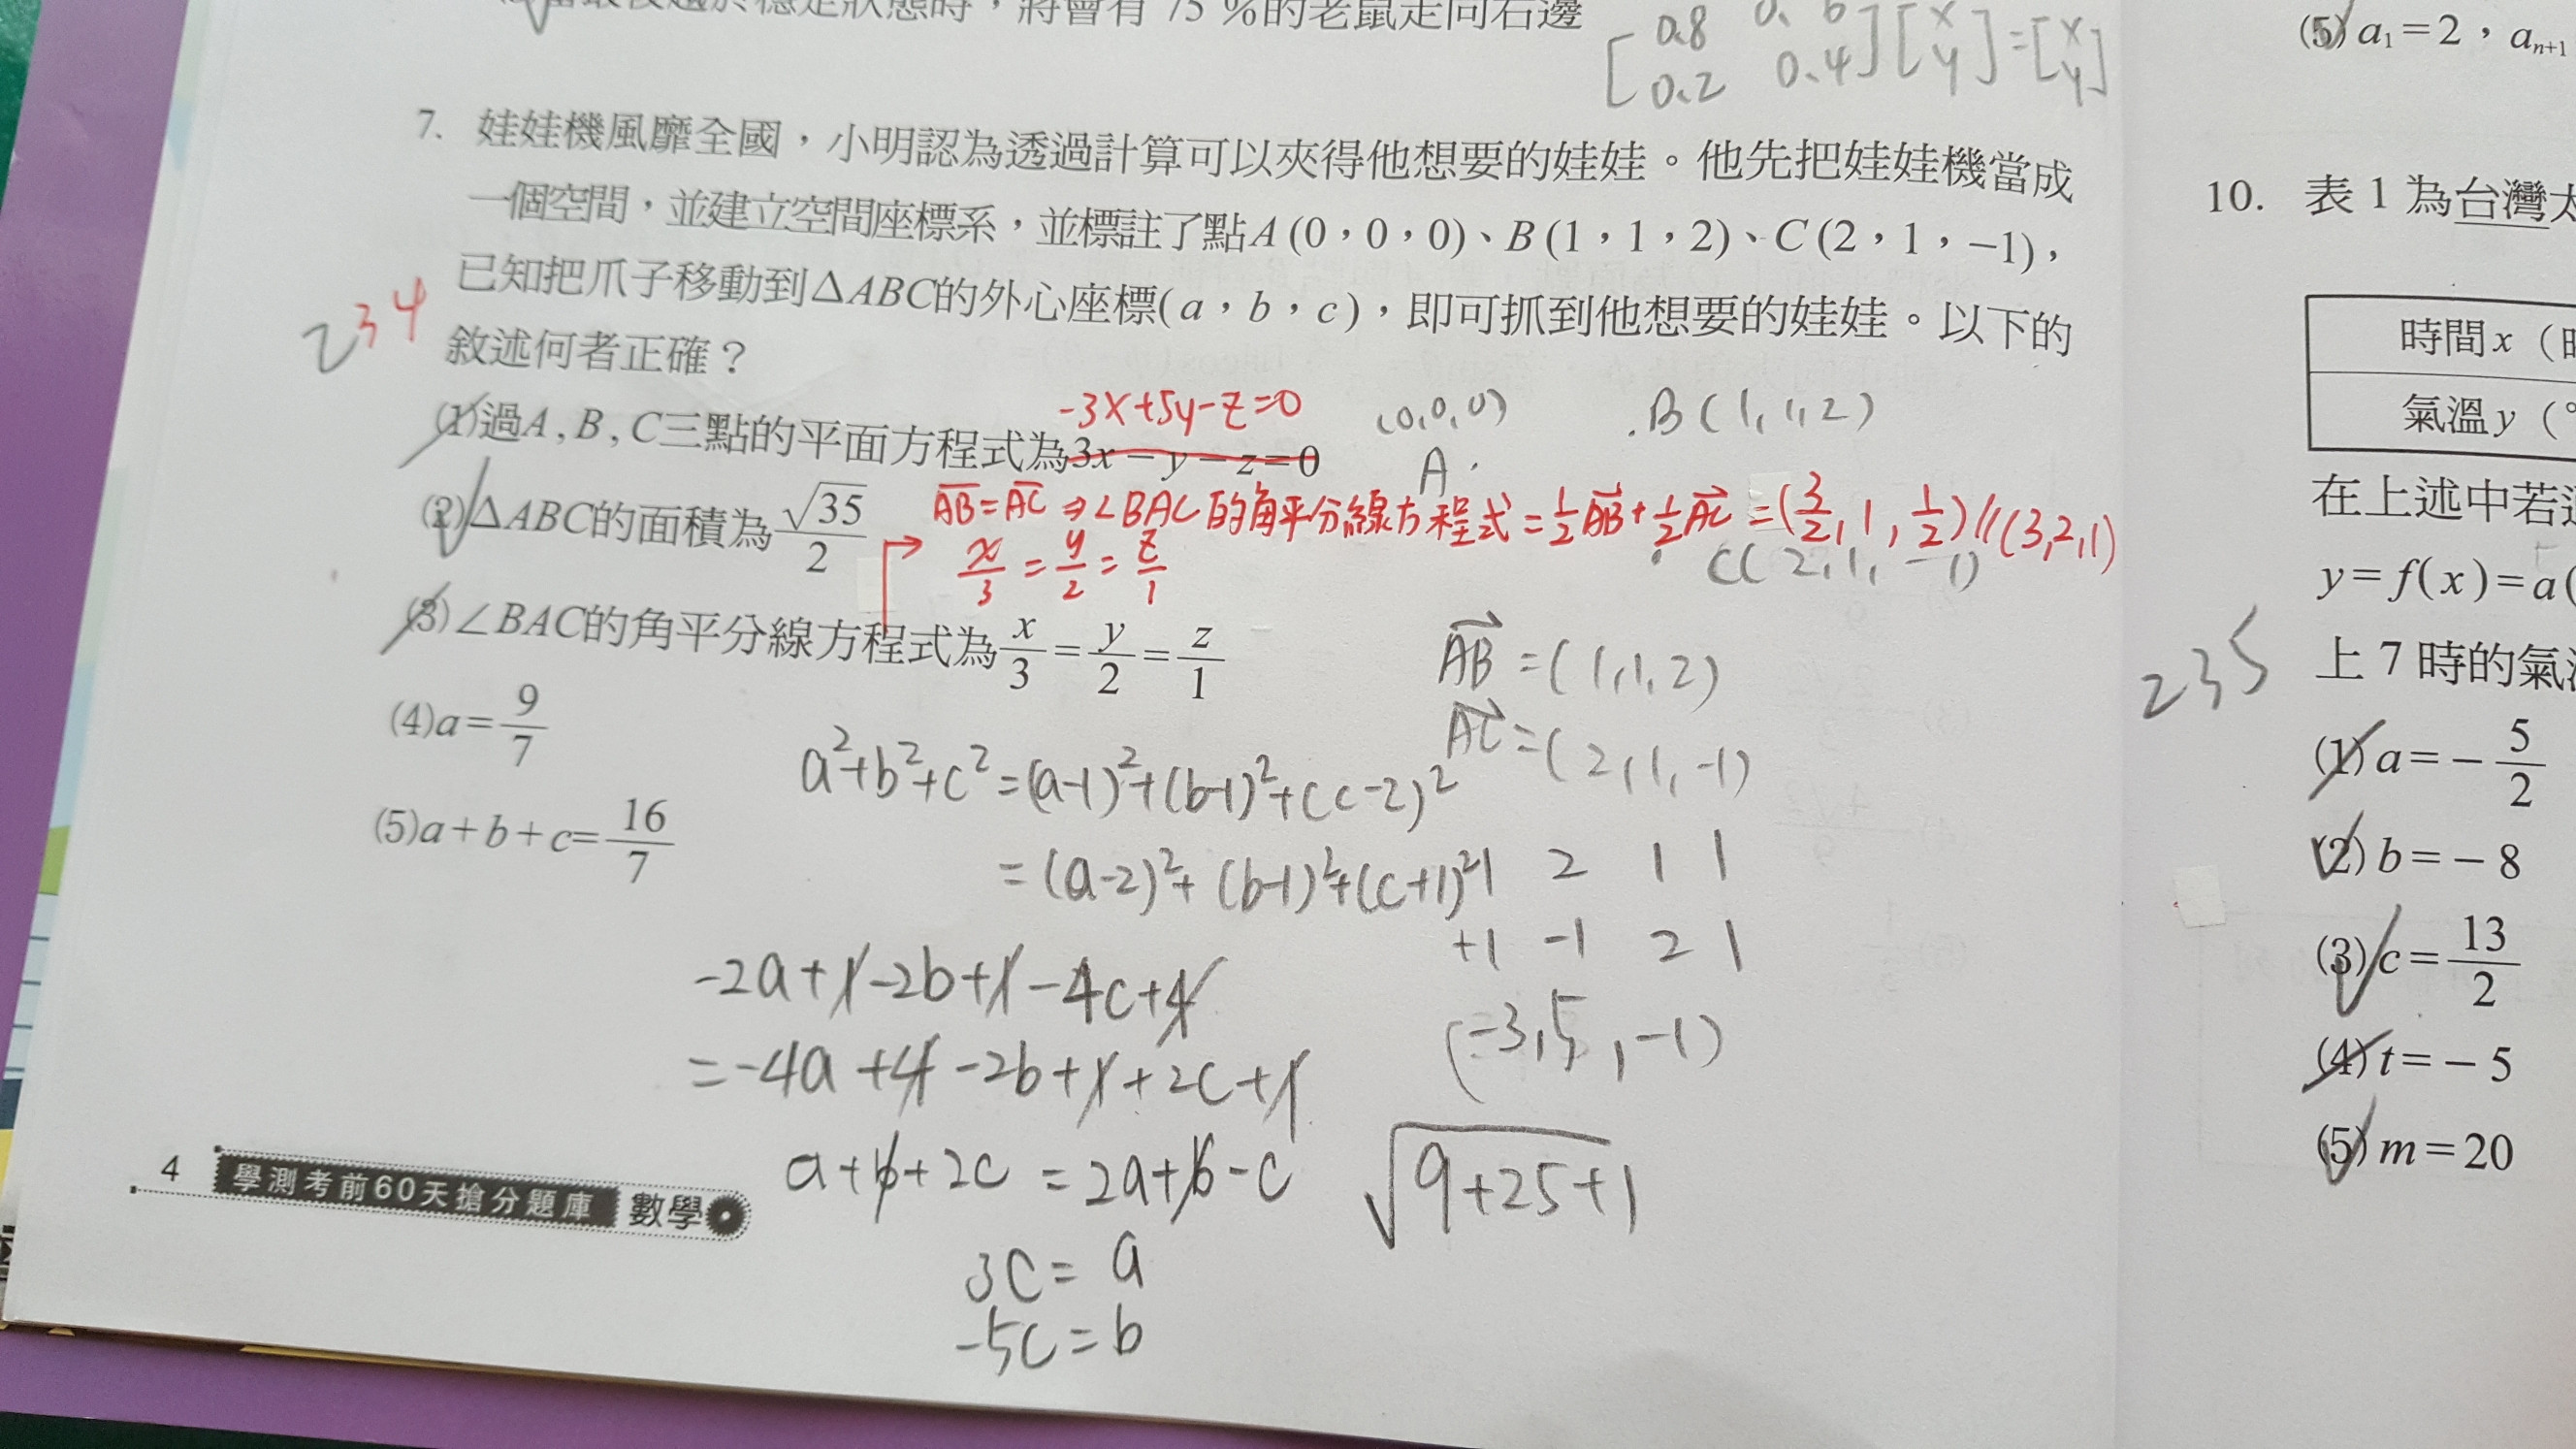 時，將會有 75 %的老鼠走向右邊
[0.8 0.6
0.2 0.4][x
y]=[x
y]
7. 娃娃機風靡全國，小明認為透過計算可以夾得他想要的娃娃。他先把娃娃機當成
一個空間，並建立空間座標系，並標註了點A(0，0，0)、B(1，1，2)、C(2，1，−1)，
已知把爪子移動到ΔABC的外心座標(a，b，c)，即可抓到他想要的娃娃。以下的
敘述何者正確？
2 3 4
-3x+5y-z=0
(1)過A , B , C三點的平面方程式為3x−y−z=0
(0,0,0)
A
B(1,1,2)
C(2,1,-1)
(2)ΔABC的面積為√35/2
AB=AC ⇒∠BAC的角平分線方程式=1/2AB+1/2AC=(3/2,1,1/2)//(3,2,1)
x/3=y/2=z/1
(3)∠BAC的角平分線方程式為x/3=y/2=z/1
(4)a=9/7
(5)a+b+c=16/7
AB=(1,1,2)
AC=(2,1,-1)
a²+b²+c²=(a-1)²+(b-1)²+(c-2)²
=(a-2)²+(b-1)²+(c+1)²
1 2 1 1
+1 -1 2 1
(-3,5,-1)
-2a+1-2b+1-4c+4
=-4a+4-2b+1+2c+1
a+b+2c=2a+b-c
3c=a
-5c=b
√9+25+1
4 學測考前60天搶分題庫 數學
(5) a₁=2，aₙ₊₁
10. 表 1 為台灣
時間x（
氣溫y（
在上述中若
y=f(x)=a(
上 7 時的氣
2 3 5
(1) a=−5/2
(2) b=−8
(3) c=13/2
(4) t=−5
(5) m=20